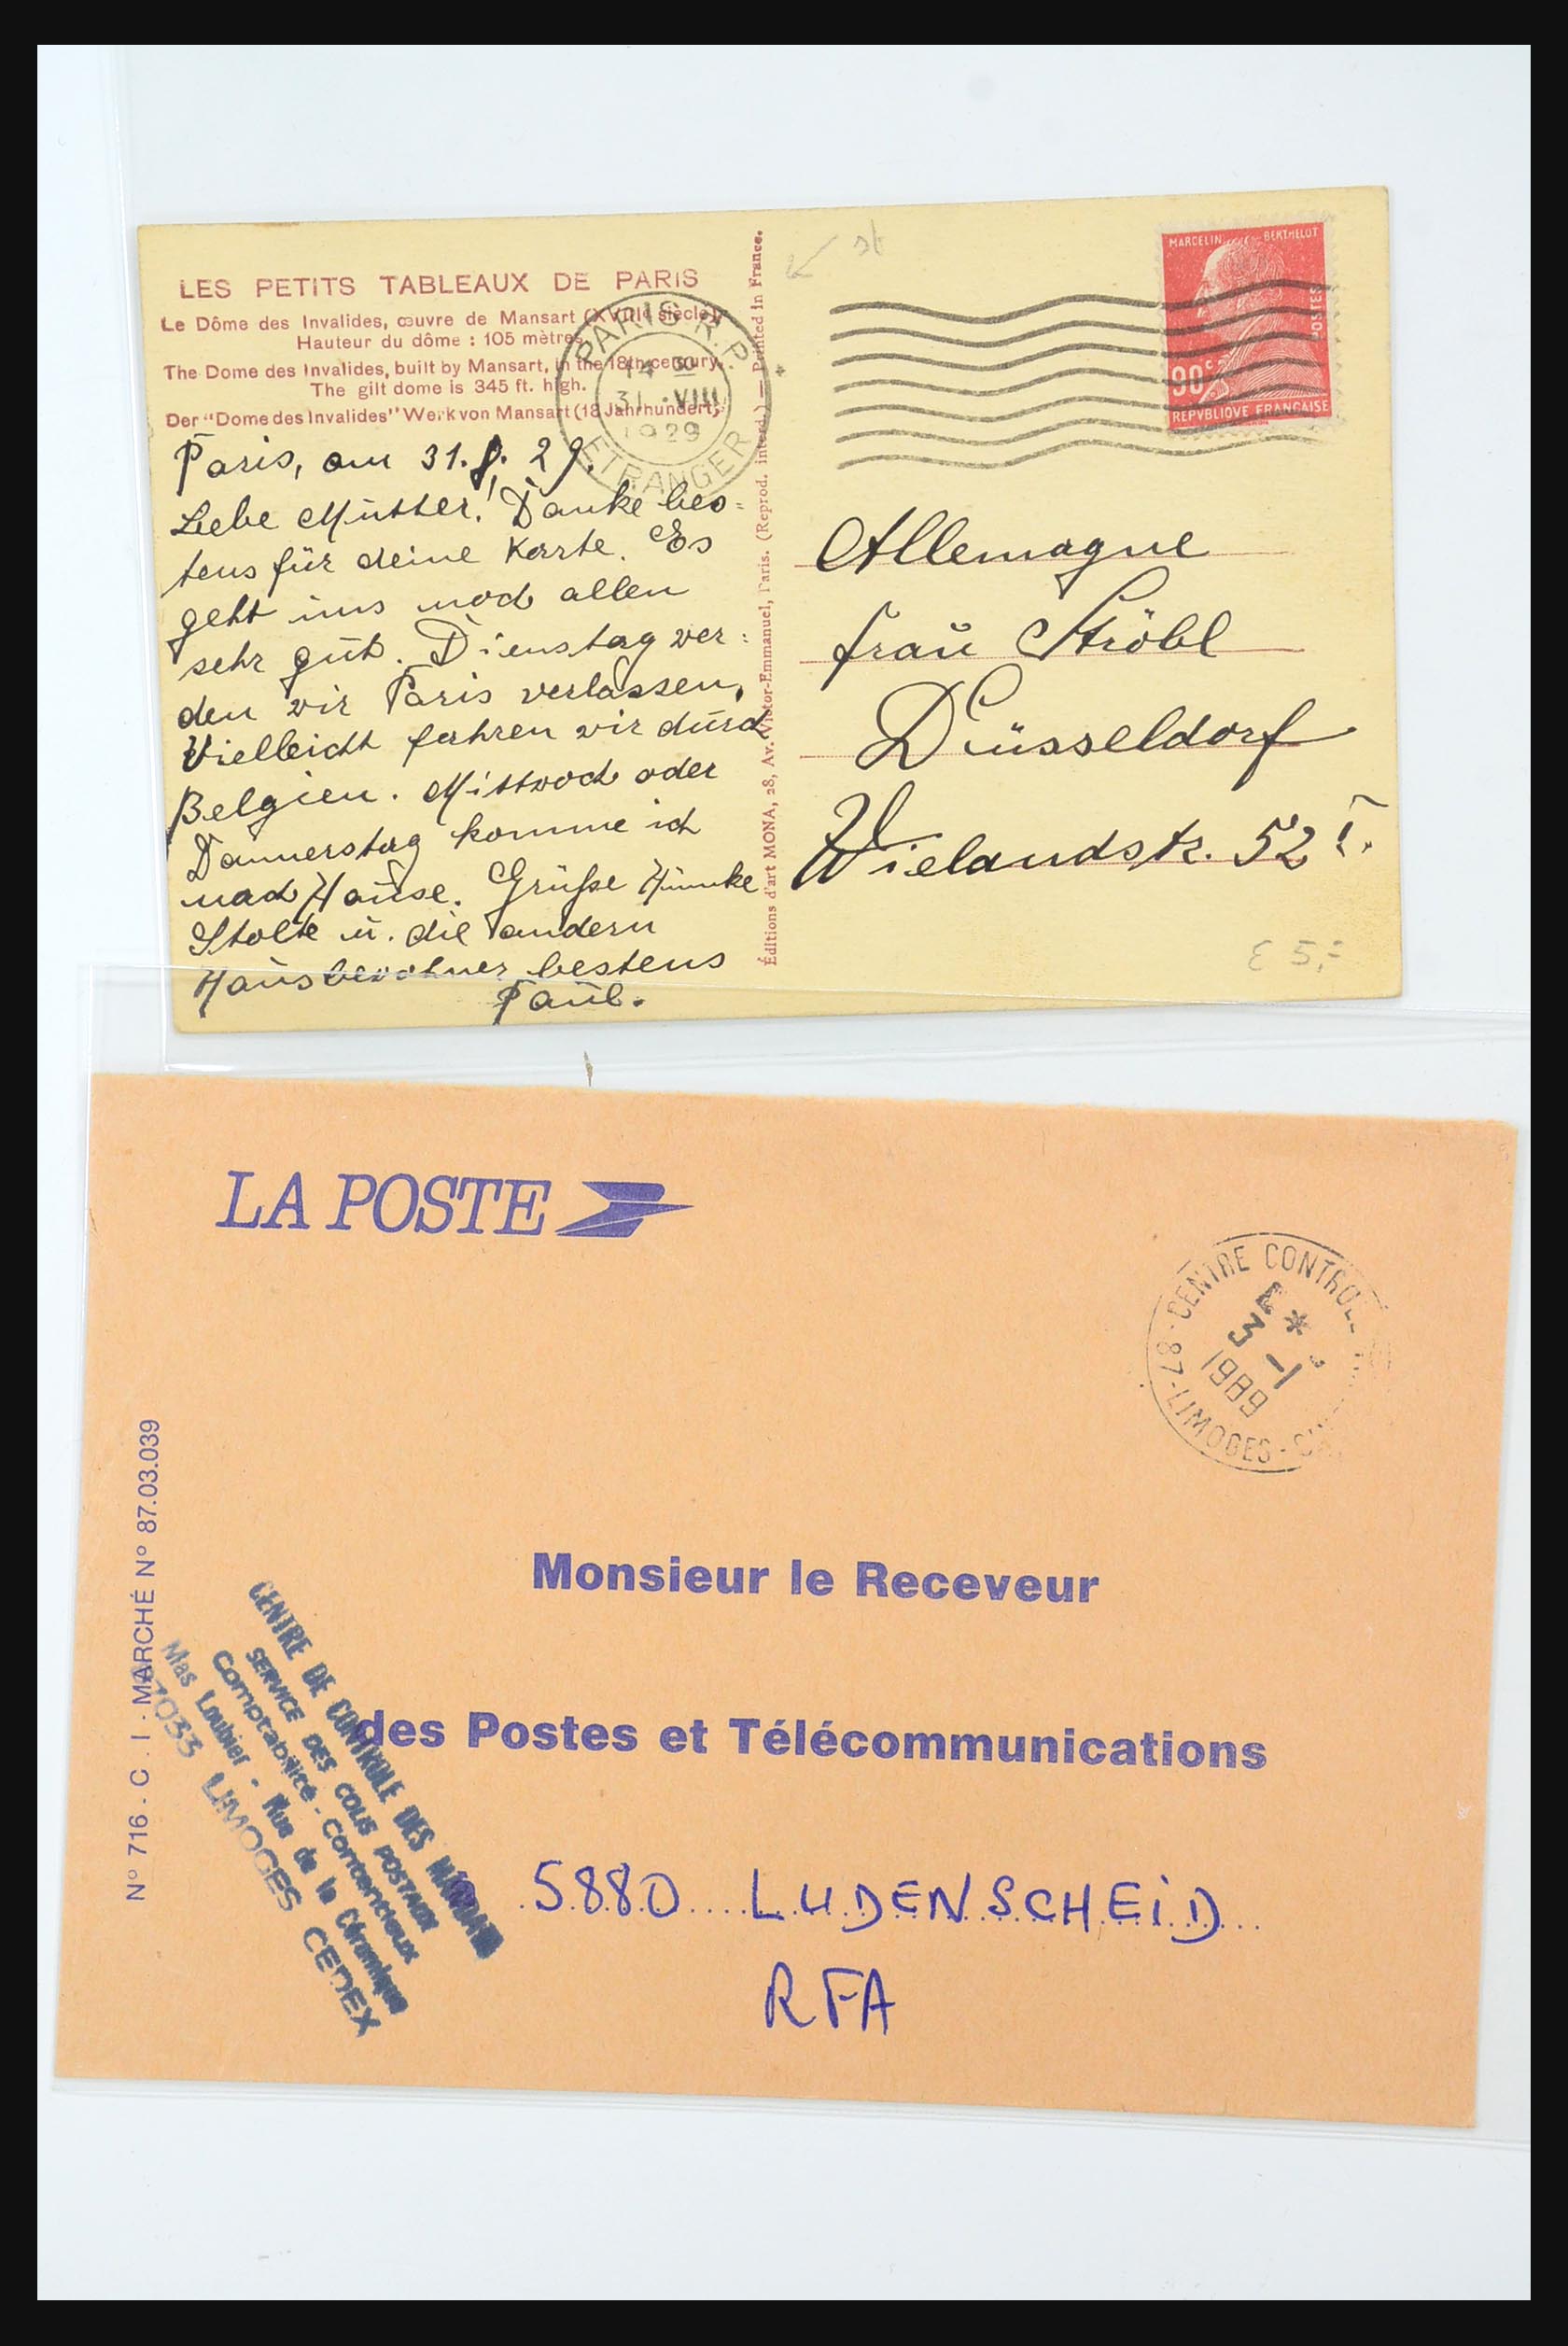 LES PETITS TABLEAUX DE PARIS
Le Dôme des Invalides, œuvre de Mansart (XVIIIe siècle)
Hauteur du dôme : 105 mètres
The Dome des Invalides, built by Mansart, in the 18th century.
The gilt dome is 345 ft. high.
Der "Dome des Invalides" Werk von Mansart (18 Jahrhundert)
PARIS R.P.
31 VIII
1929
ETRANGER
Paris, am 31.8.29.
Liebe Mutter! Danke bes=
tens für deine Karte. Es
geht uns noch allen
sehr gut. Dienstag wer=
den wir Paris verlassen,
Vielleicht fahren wir durch
Belgien. Mittwoch oder
Donnerstag komme ich
nach Hause. Grüße
Stolte u. die andern
Hausbewohner bestens
Paul.
Éditions d'art MONA, 28, Av. Victor-Emmanuel, Paris. (Reprod. interd.) — Printed in France.
MARCELIN BERTHELOT
POSTES
90c
REPVBLIQVE FRANÇAISE
Allemagne
Frau Ströbl
Düsseldorf
Wielandstr. 52 I.
€ 5,=
LA POSTE
CENTRE CONTROLE
3 -1
1989
87-LIMOGES
N° 716 - C. I - MARCHÉ N° 87.03.039
CENTRE DE CONTROLE DES MANDATS
SERVICE DES COLIS POSTAUX
Comptabilité - Contentieux
Mas Loubier - Rue de la Céramique
87033 LIMOGES CEDEX
Monsieur le Receveur
des Postes et Télécommunications
5880 LUDENSCHEID
RFA